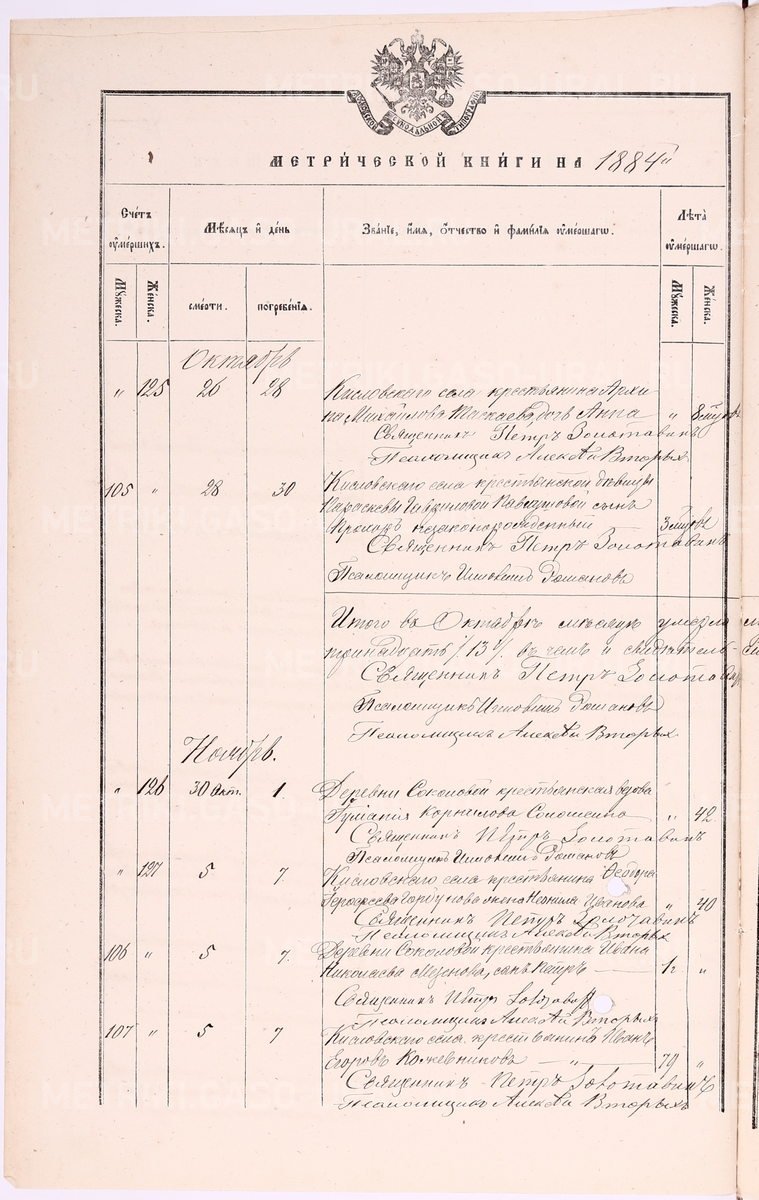 МОСКОВСКОЙ СѴНОДАЛЬНОЙ ТИПОГРАФІИ
МЕТРИ́ЧЕСКОЙ КНИ́ГИ НА 1884й
Сче́тъ ᲂу҆ме́ршихъ.
Мѣ́сяцъ и҆ де́нь
Зва́нїе, и҆́мя, ѻ҆́тчество и҆ фами́лїя ᲂу҆ме́ршагѡ.
Лѣ́та ᲂу҆ме́ршагѡ.
Мꙋ́жеска. Же́нска. сме́рти. погребе́нїя. Мꙋ́жеска. Же́нска.
Октябрь
" 125 26 28 Кисловскаго села крестьянина Архи
па Михайлова Таскаева, дочь Анна " 8 мцовъ
Священникъ Петръ Золотавинъ
Псаломщикъ Алексѣй Вторыхъ
105 " 28 30 Кисловскаго села крестьянской дѣвицы
Параскевы Гавриловой сынъ
незаконорожденный 3 мцовъ
Священникъ Петръ Золотавинъ
Псаломщикъ Романовъ
Итого въ Октябрѣ мѣсяцѣ умерло
тринадцать /13/ въ чемъ и свидѣтель-
Священникъ Петръ Золотавин
Псаломщикъ Романовъ
Псаломщикъ Алексѣй Вторыхъ
Ноябрь.
" 126 30 Окт. 1 Деревни Соколовой крестьянская вдова
Корнилова " 42
Священникъ Петръ Золотавинъ
Псаломщикъ Романовъ
" 127 5 7 Кисловскаго села крестьянина Ѳедора
Горбунова жена Иванова " 40
Священникъ Петръ Золотавинъ
Псаломщикъ Алексѣй Вторыхъ
106 " 5 7. Деревни Соколовой крестьянина Ивана
Николаева сынъ Петръ 1½ "
Священникъ Петръ Золотавин
Псаломщикъ Алексѣй Вторыхъ
107 " 5 7 Кисловскаго села крестьянинъ Иванъ
Егоровъ Кожевниковъ " 79 "
Священникъ Петръ Золотавинъ
Псаломщикъ Алексѣй Вторыхъ